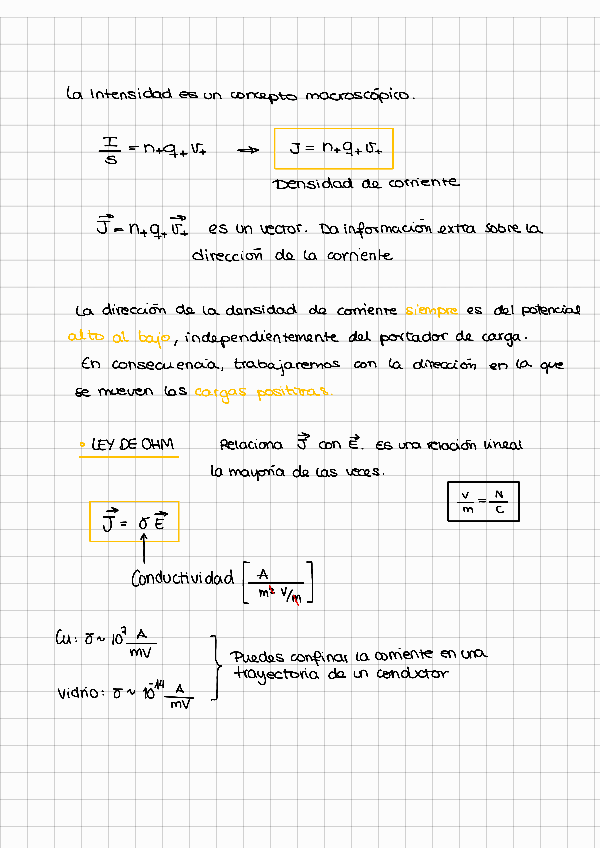 La Intensidad es un concepto macroscópico.
I/S = n₊q₊v₊ → J = n₊q₊v₊
Densidad de corriente
J⃗ = n₊q₊v⃗₊ es un vector. Da información extra sobre la
dirección de la corriente
La dirección de la densidad de corriente siempre es del potencial
alto al bajo, independientemente del portador de carga.
En consecuencia, trabajaremos con la dirección en la que
se mueven las cargas positivas.
• LEY DE OHM Relaciona J⃗ con E⃗. Es una relación lineal
la mayoría de las veces.
V/m = N/C
J⃗ = σE⃗
Conductividad [A / m² V/m]
Cu: σ ~ 10⁷ A/mV
Vidrio: σ ~ 10⁻¹⁴ A/mV
Puedes confinar la corriente en una
trayectoria de un conductor